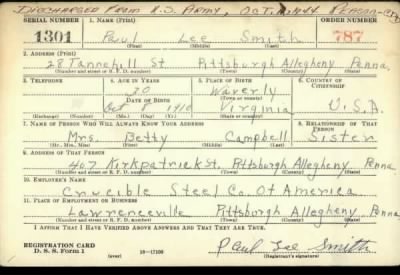 DISCHARGED FROM U.S. ARMY, Oct.
SERIAL NUMBER 1. Name (Print) ORDER NUMBER
1301 Paul Lee Smith 787
(First) (Middle) (Last)
2. Address (Print)
28 Tannehill St Pittsburgh Allegheny Penna,
(Number and street or R. F. D. number) (Town) (County) (State)
3. Telephone 4. Age in Years 5. Place of Birth 6. Country of Citizenship
30 Waverly
Date of Birth (Town or county)
Oct 8 1910 Virginia U.S.A.
(Exchange) (Number) (Mo.) (Day) (Yr.) (State or country)
7. Name of Person Who Will Always Know Your Address 8. Relationship of That Person
Mrs. Betty Campbell Sister
(Mr., Mrs., Miss) (First) (Middle) (Last)
9. Address of That Person
407 Kirkpatrick St, Pittsburgh Allegheny Penna
(Number and street or R. F. D. number) (Town) (County) (State)
10. Employer's Name
Crucible Steel Co. Of America
11. Place of Employment or Business
Lawrenceville Pittsburgh Allegheny Penna
(Number and street or R. F. D. number) (Town) (County) (State)
I Affirm That I Have Verified Above Answers and That They Are True.
REGISTRATION CARD
D. S. S. Form 1 (over) Paul Lee Smith
(Registrant's signature)